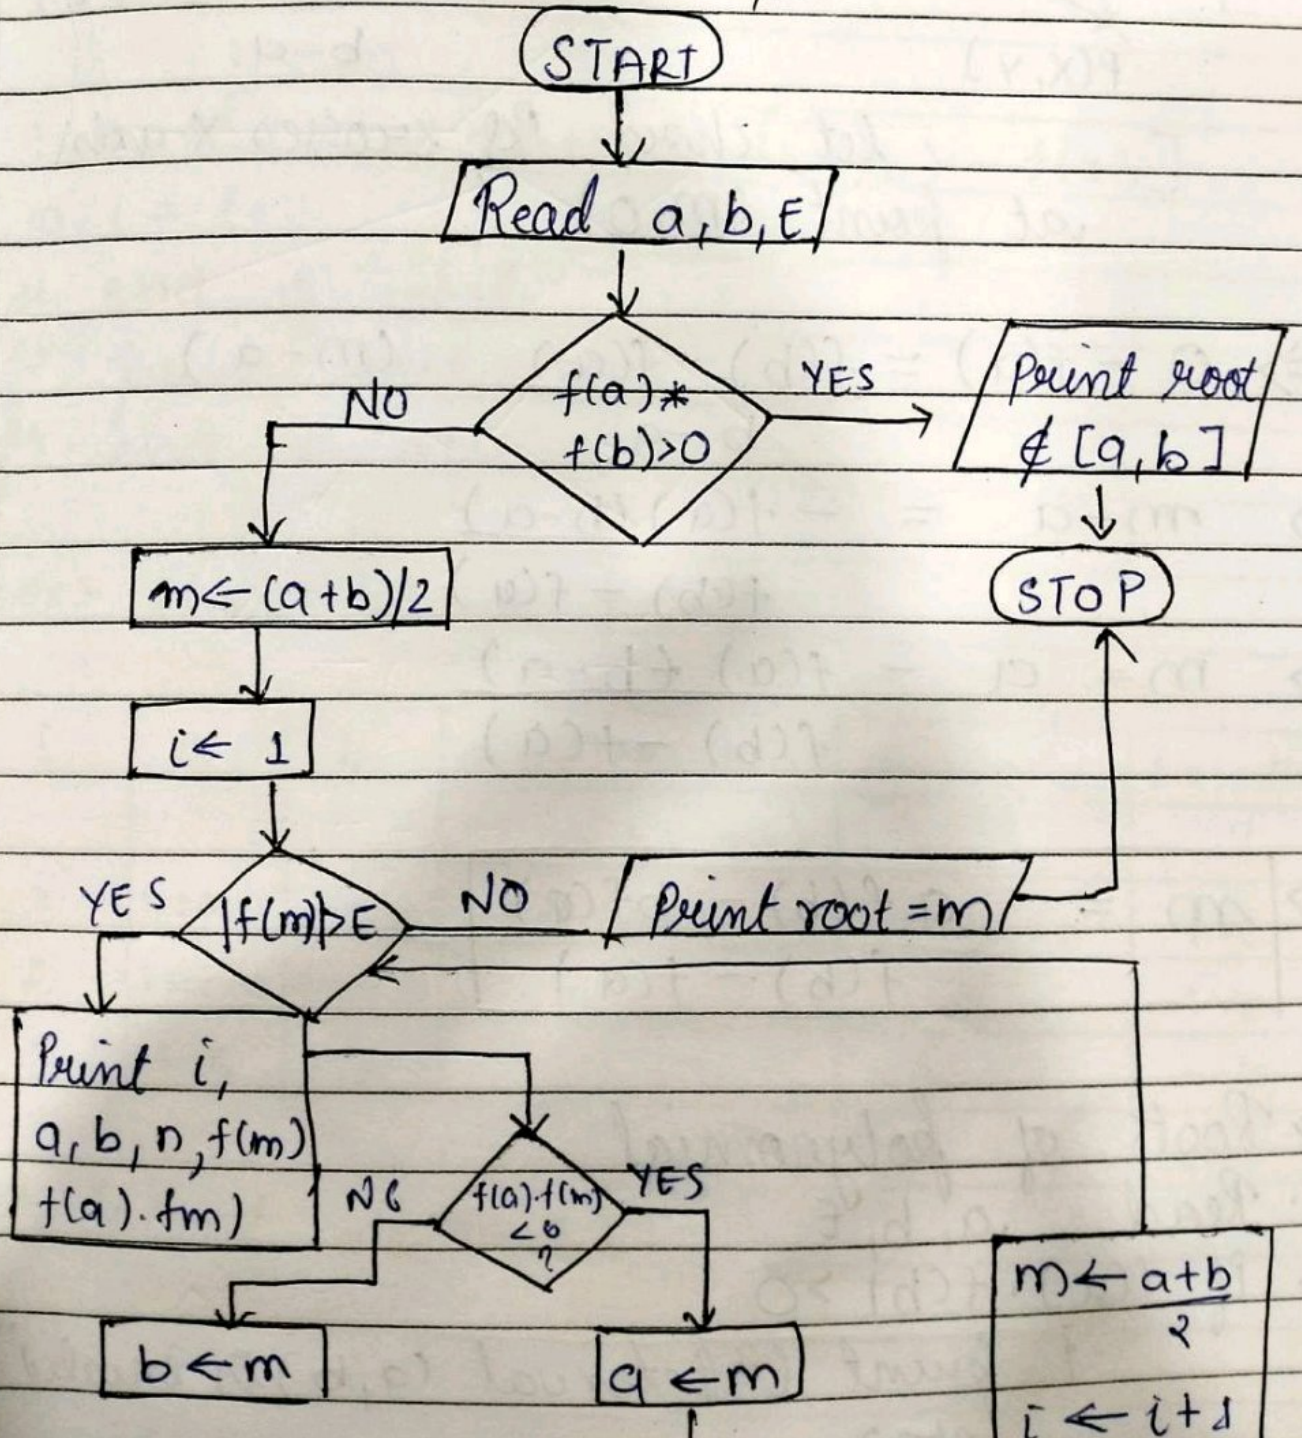 START
Read a, b, E
f(a)*
f(b)>0
NO
YES
Print root
∉ [a, b]
STOP
m←(a+b)/2
i← 1
|f(m)|>E
YES
NO
Print root = m
Print i,
a, b, n, f(m)
f(a). fm)
f(a).f(m)
<0
?
NO
YES
b←m
a ←m
m← a+b
2
i ← i+1